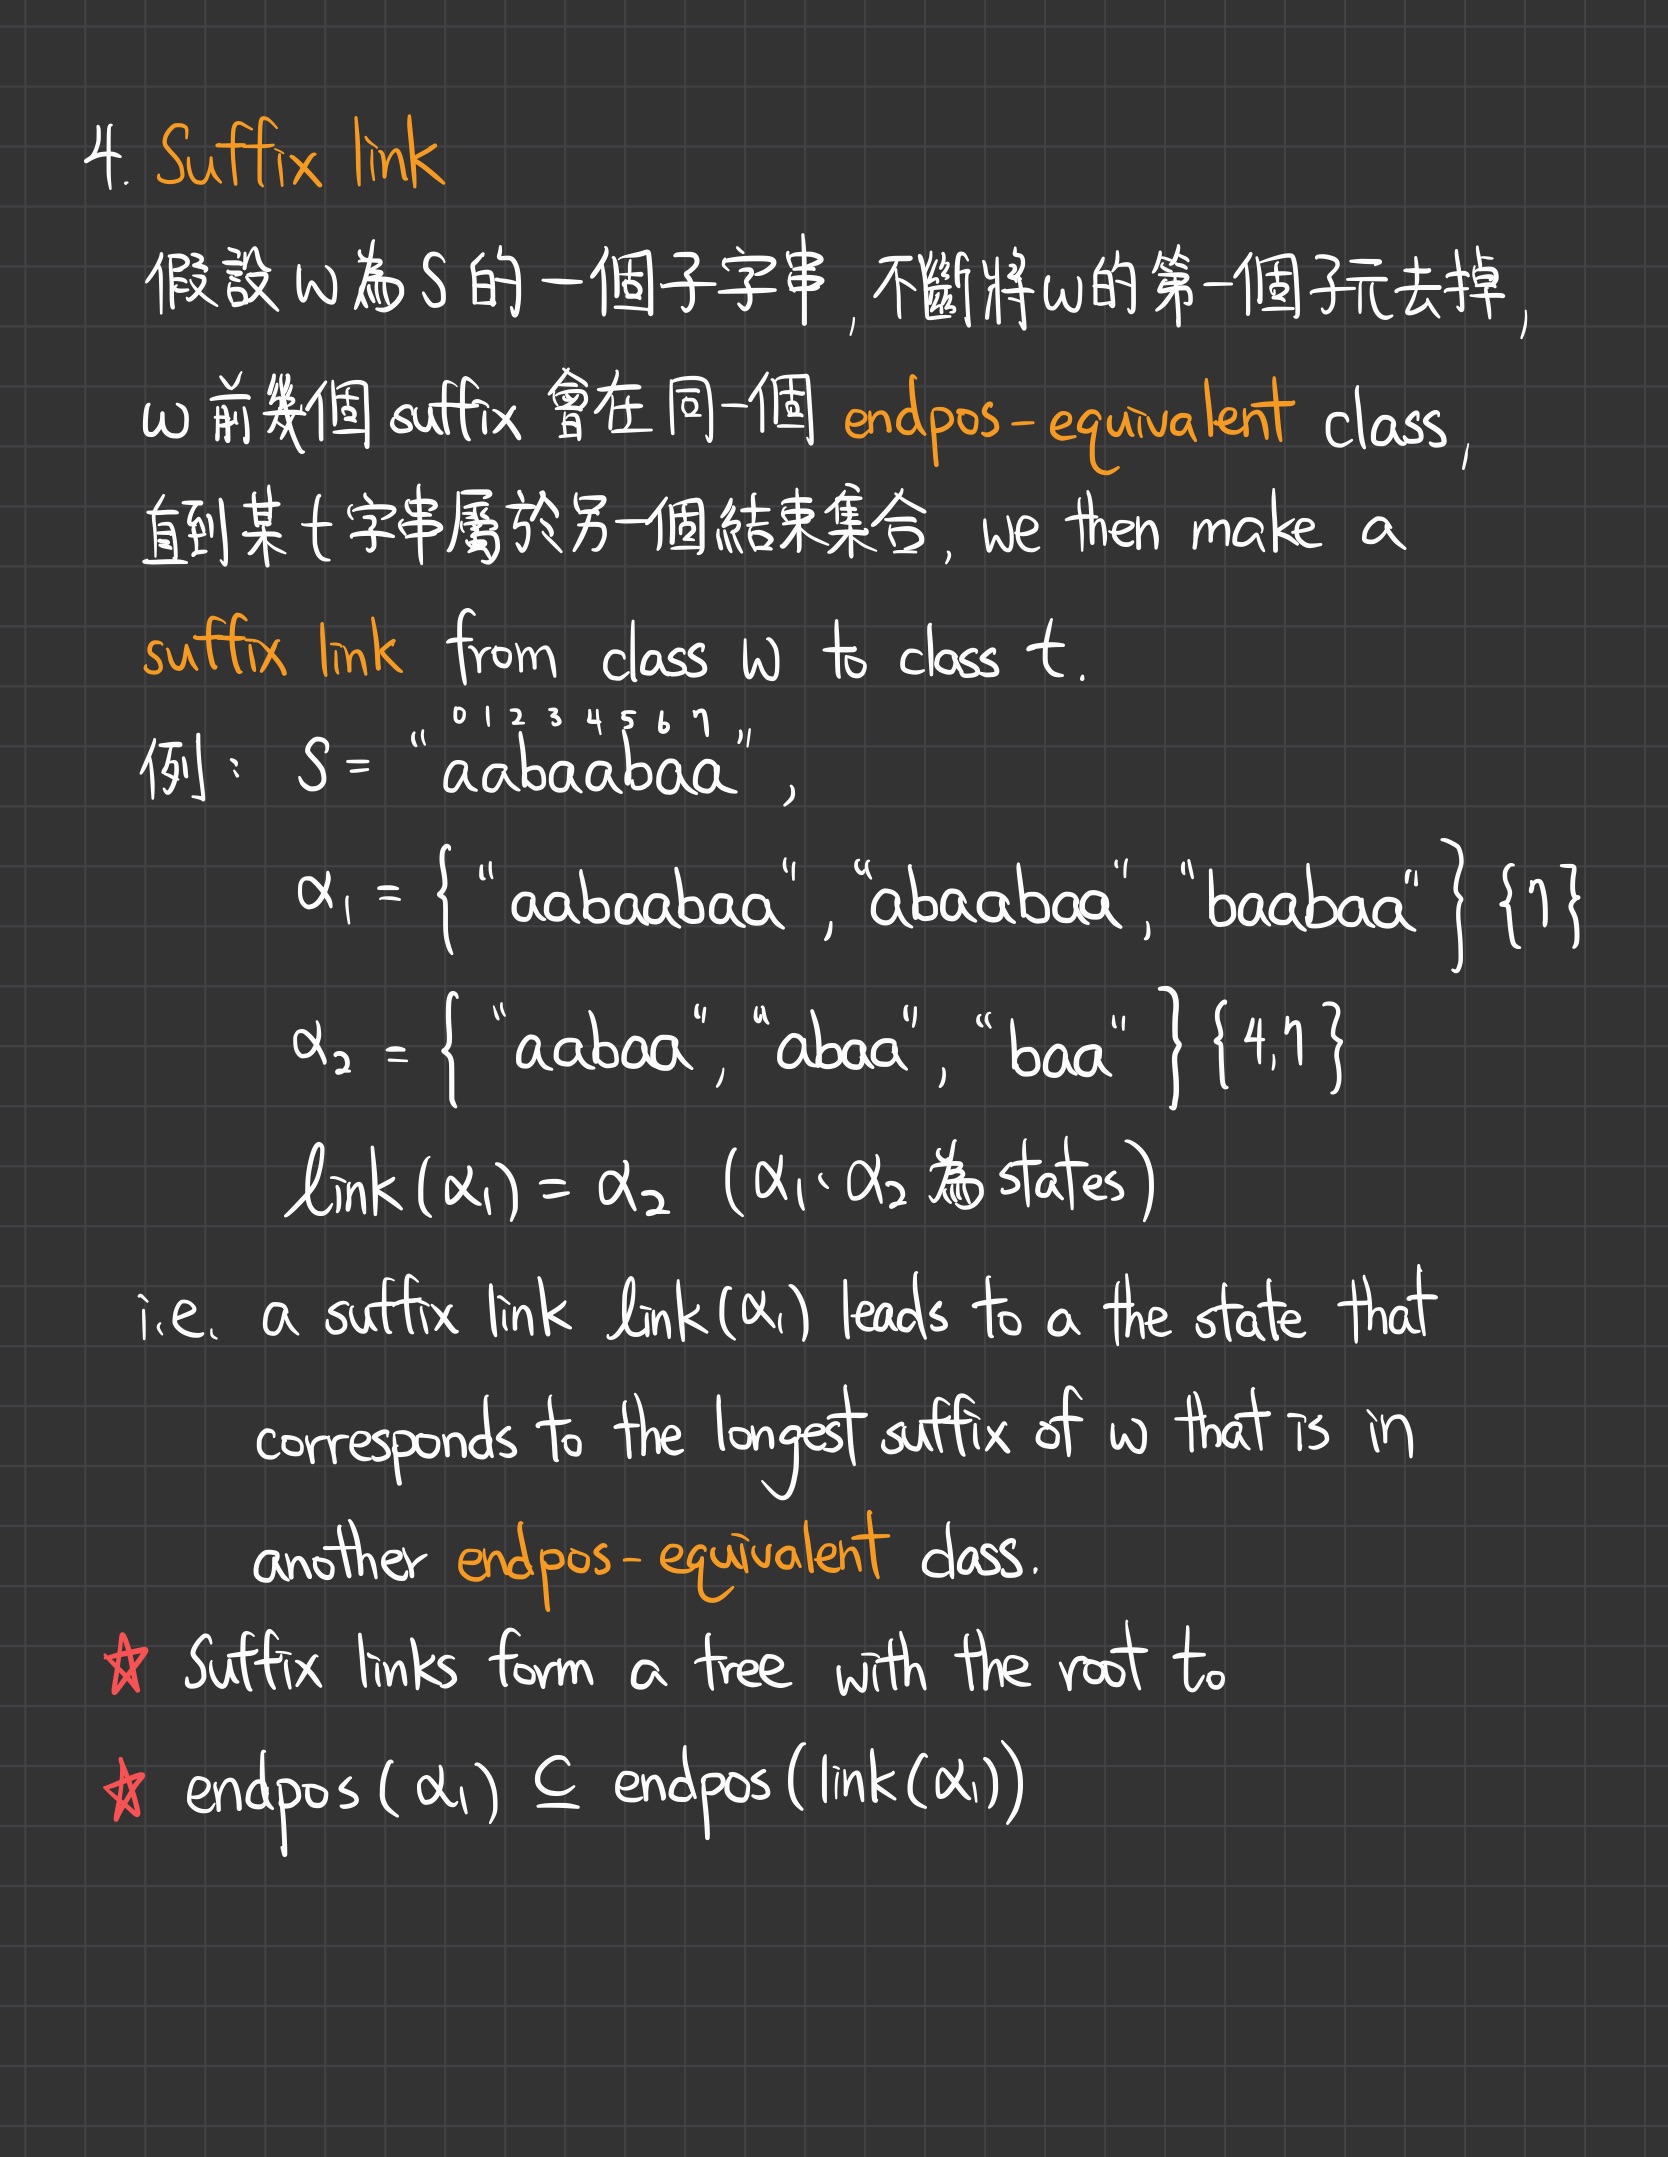 4. Suffix link
假設 w 為 S 的一個子字串, 不斷將 w 的第一個子元去掉,
w 前幾個 suffix 會在同一個 endpos-equivalent class,
直到某 t 字串屬於另一個結束集合, we then make a
suffix link from class w to class t.
0 1 2 3 4 5 6 7
例: S = "aabaabaa",
α₁ = { "aabaabaa", "abaabaa", "baabaa" } {7}
α₂ = { "aabaa", "abaa", "baa" } {4,7}
link(α₁) = α₂ (α₁、α₂ 為 states)
i.e. a suffix link link(α₁) leads to a the state that
corresponds to the longest suffix of w that is in
another endpos-equivalent class.
☆ Suffix links form a tree with the root t₀
☆ endpos(α₁) ⊆ endpos(link(α₁))